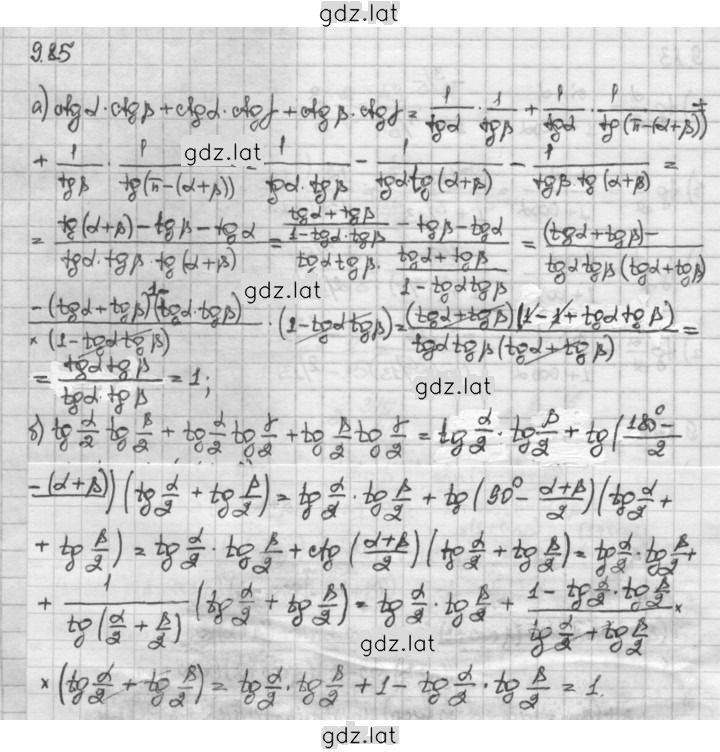 gdz.lat
9.85
а) ctg α · ctg β + ctg α · ctg γ + ctg β · ctg γ = 1/tg α · 1/tg β + 1/tg α · 1/tg(π-(α+β)) +
+ 1/tg β · 1/tg(π-(α+β)) = 1/(tg α · tg β) - 1/(tg α tg(α+β)) - 1/(tg β · tg(α+β)) =
gdz.lat
= (tg(α+β) - tg β - tg α)/(tg α · tg β · tg(α+β)) = ((tg α + tg β)/(1 - tg α · tg β) - tg β - tg α)/(tg α tg β · (tg α + tg β)/(1 - tg α tg β)) = ((tg α + tg β) -)/(tg α tg β (tg α + tg β)
gdz.lat
- (tg α + tg β)(1 - tg α · tg β)/× (1 - tg α tg β) · (1 - tg α tg β) = (tg α + tg β)(1 - 1 + tg α tg β)/(tg α tg β (tg α + tg β)) =
= (tg α tg β)/(tg α · tg β) = 1;
gdz.lat
б) tg α/2 tg β/2 + tg α/2 tg γ/2 + tg β/2 tg γ/2 = tg α/2 · tg β/2 + tg (180° -/2
- (α+β)) (tg α/2 + tg β/2) = tg α/2 · tg β/2 + tg (90° - (α+β)/2) (tg α/2 +
+ tg β/2) = tg α/2 · tg β/2 + ctg ((α+β)/2) (tg α/2 + tg β/2) = tg α/2 · tg β/2 +
+ 1/tg(α/2 + β/2) (tg α/2 + tg β/2) = tg α/2 · tg β/2 + (1 - tg α/2 · tg β/2)/(tg α/2 + tg β/2) ×
gdz.lat
× (tg α/2 + tg β/2) = tg α/2 · tg β/2 + 1 - tg α/2 · tg β/2 = 1.
gdz.lat